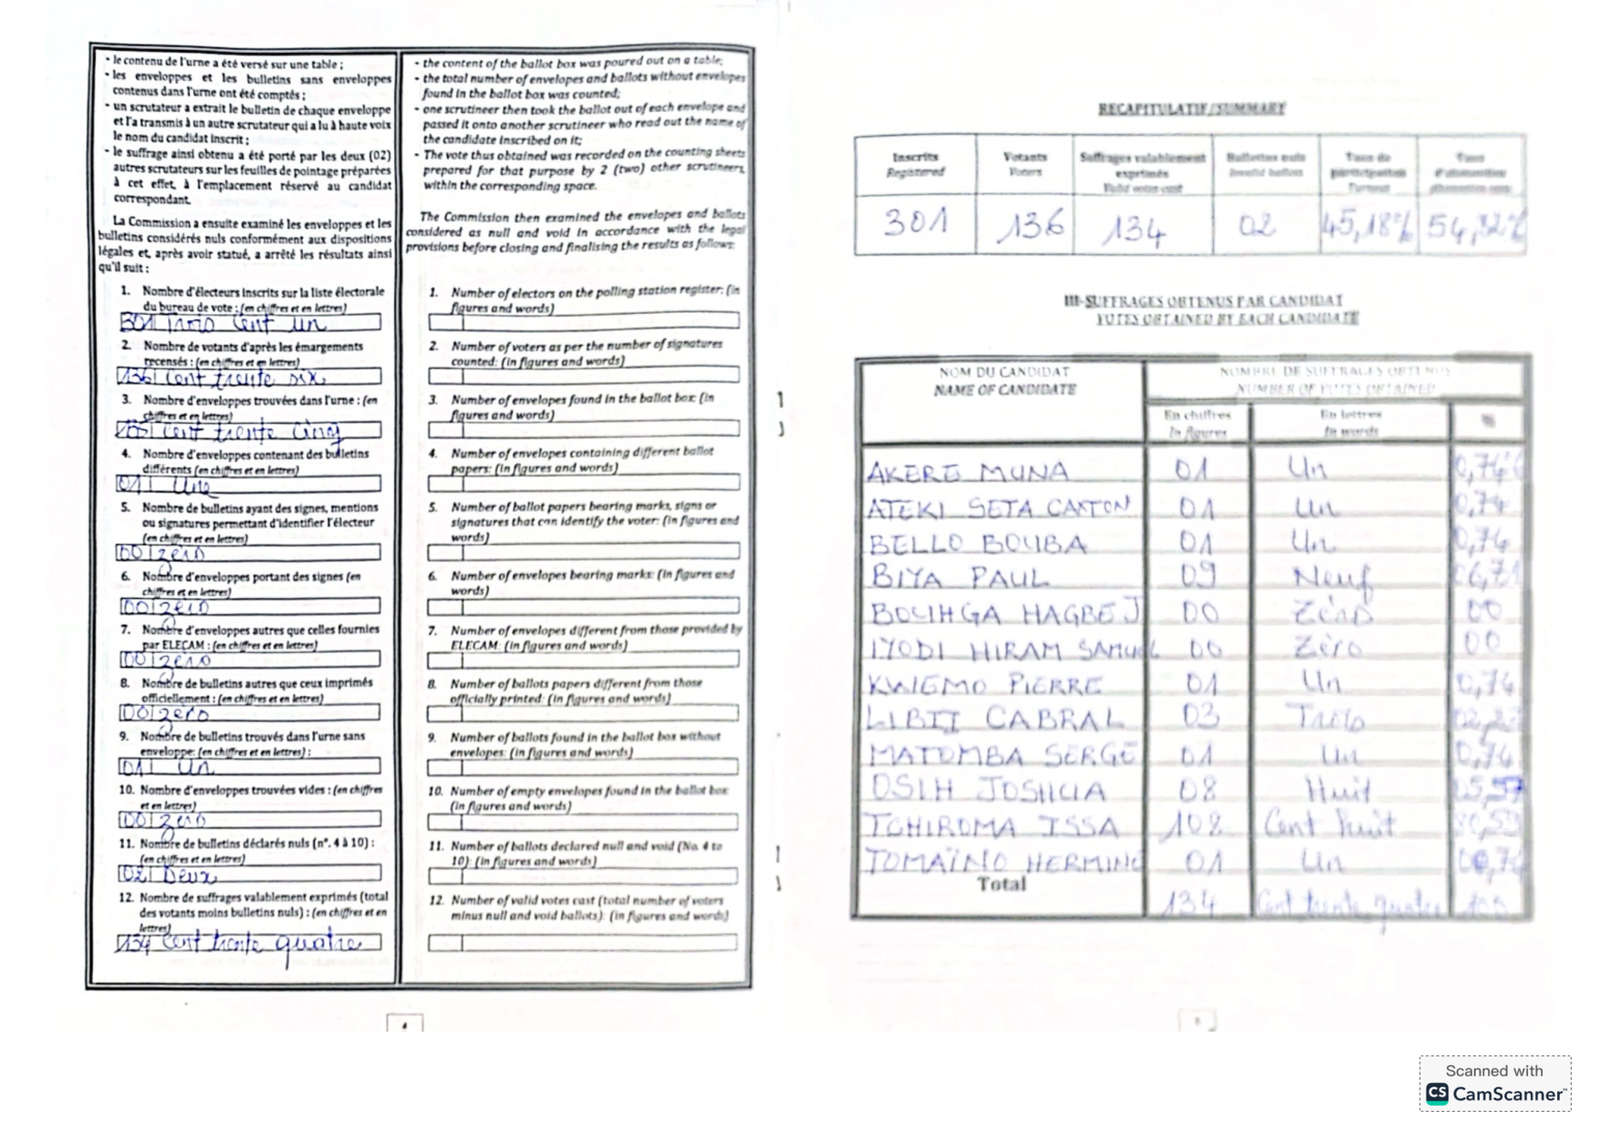 - le contenu de l'urne a été versé sur une table ;
- les enveloppes et les bulletins sans enveloppes
contenus dans l'urne ont été comptés ;
- un scrutateur a extrait le bulletin de chaque enveloppe
et l'a transmis à un autre scrutateur qui a lu à haute voix
le nom du candidat inscrit ;
- le suffrage ainsi obtenu a été porté par les deux (02)
autres scrutateurs sur les feuilles de pointage préparées
à cet effet, à l'emplacement réservé au candidat
correspondant.
La Commission a ensuite examiné les enveloppes et les
bulletins considérés nuls conformément aux dispositions
légales et, après avoir statué, a arrêté les résultats ainsi
qu'il suit :
1. Nombre d'électeurs inscrits sur la liste électorale
du bureau de vote : (en chiffres et en lettres)
301 Trois Cent un
2. Nombre de votants d'après les émargements
recensés : (en chiffres et en lettres)
136 Cent trente six
3. Nombre d'enveloppes trouvées dans l'urne : (en
chiffres et en lettres)
135 Cent trente cinq
4. Nombre d'enveloppes contenant des bulletins
différents (en chiffres et en lettres)
01 Une
5. Nombre de bulletins ayant des signes, mentions
ou signatures permettant d'identifier l'électeur
(en chiffres et en lettres)
00 zéro
6. Nombre d'enveloppes portant des signes (en
chiffres et en lettres)
00 zéro
7. Nombre d'enveloppes autres que celles fournies
par ELECAM : (en chiffres et en lettres)
00 zéro
8. Nombre de bulletins autres que ceux imprimés
officiellement : (en chiffres et en lettres)
00 zéro
9. Nombre de bulletins trouvés dans l'urne sans
enveloppe: (en chiffres et en lettres) :
01 Un
10. Nombre d'enveloppes trouvées vides : (en chiffres
et en lettres)
00 zéro
11. Nombre de bulletins déclarés nuls (n°. 4 à 10) :
(en chiffres et en lettres)
02 Deux
12. Nombre de suffrages valablement exprimés (total
des votants moins bulletins nuls) : (en chiffres et en
lettres)
134 Cent trente quatre
- the content of the ballot box was poured out on a table;
- the total number of envelopes and ballots without envelopes
found in the ballot box was counted;
- one scrutineer then took the ballot out of each envelope and
passed it onto another scrutineer who read out the name of
the candidate inscribed on it;
- The vote thus obtained was recorded on the counting sheets
prepared for that purpose by 2 (two) other scrutineers,
within the corresponding space.
The Commission then examined the envelopes and ballots
considered as null and void in accordance with the legal
provisions before closing and finalising the results as follows:
1. Number of electors on the polling station register: (in
figures and words)
2. Number of voters as per the number of signatures
counted: (in figures and words)
3. Number of envelopes found in the ballot box: (in
figures and words)
4. Number of envelopes containing different ballot
papers: (in figures and words)
5. Number of ballot papers bearing marks, signs or
signatures that can identify the voter: (in figures and
words)
6. Number of envelopes bearing marks: (in figures and
words)
7. Number of envelopes different from those provided by
ELECAM: (in figures and words)
8. Number of ballots papers different from those
officially printed: (in figures and words)
9. Number of ballots found in the ballot box without
envelopes: (in figures and words)
10. Number of empty envelopes found in the ballot box:
(in figures and words)
11. Number of ballots declared null and void (No. 4 to
10): (in figures and words)
12. Number of valid votes cast (total number of voters
minus null and void ballots): (in figures and words)
4
RECAPITULATIF/SUMMARY
Inscrits Votants Suffrages valablement Bulletins nuls Taux de Taux
Registered Voters exprimés Invalid ballots participation d'abstention
Valid votes cast Turnout
301 136 134 02 45,18% 54,82%
III-SUFFRAGES OBTENUS PAR CANDIDAT
VOTES OBTAINED BY EACH CANDIDATE
NOM DU CANDIDAT NOMBRE DE SUFFRAGES OBTENUS
NAME OF CANDIDATE NUMBER OF VOTES OBTAINED
En chiffres En lettres %
In figures In words
AKERE MUNA 01 Un 0,74
ATEKI SETA CAXTON 01 Un 0,74
BELLO BOUBA 01 Un 0,74
BIYA PAUL 09 Neuf 06,71
BOUHGA HAGBE J 00 Zéro 00
IYODI HIRAM SAMUEL 00 Zéro 00
KWEMO PIERRE 01 Un 0,74
LIBII CABRAL 03 Trois 02,23
MATOMBA SERGE 01 Un 0,74
OSIH JOSHUA 08 Huit 05,97
TCHIROMA ISSA 108 Cent huit 80,59
TOMAÏNO HERMINE 01 Un 00,74
Total 134 Cent trente quatre 100
Scanned with
CS CamScanner